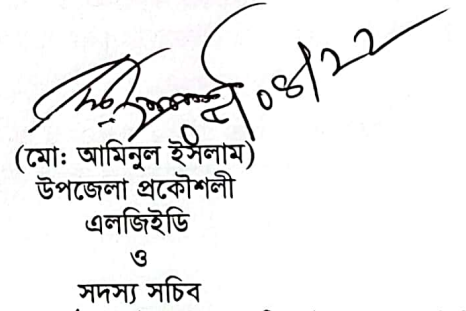 ০৫/০৪/২২
(মোঃ আমিনুল ইসলাম)
উপজেলা প্রকৌশলী
এলজিইডি
ও
সদস্য সচিব